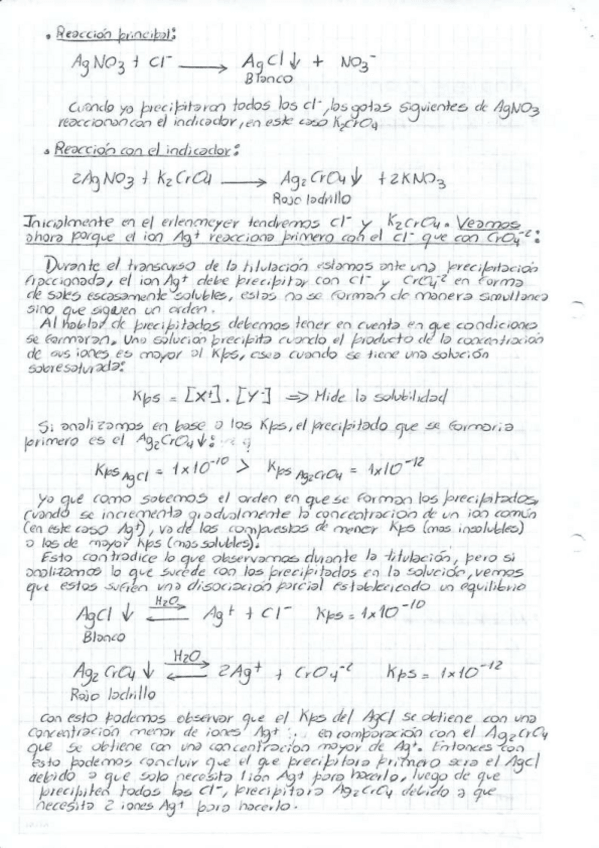 • Reacción principal:
AgNO3 + Cl⁻ ⟶ AgCl↓ + NO3⁻
Blanco
Cuando ya precipitaron todos los Cl⁻, las gotas siguientes de AgNO3
reaccionan con el indicador, en este caso K2CrO4
• Reacción con el indicador:
2AgNO3 + K2CrO4 ⟶ Ag2CrO4↓ + 2KNO3
Rojo ladrillo
Inicialmente en el erlenmeyer tendremos Cl⁻ y K2CrO4. Veamos
ahora porque el ion Ag⁺ reacciona primero con el Cl⁻ que con CrO4⁻²:
Durante el transcurso de la titulación estamos ante una precipitación
fraccionada, el ion Ag⁺ debe precipitar con Cl⁻ y CrO4⁻² en forma
de sales escasamente solubles, estas no se forman de manera simultanea
sino que siguen un orden.
Al hablar de precipitados debemos tener en cuenta en que condiciones
se formaran. Una solución precipita cuando el producto de la concentración
de sus iones es mayor al Kps, osea cuando se tiene una solución
sobresaturada:
Kps = [X⁺] . [Y⁻] ⇒ Mide la solubilidad
Si analizamos en base a los Kps, el precipitado que se formaria
primero es el Ag2CrO4↓:
Kps AgCl = 1x10⁻¹⁰ > Kps Ag2CrO4 = 1x10⁻¹²
Ya que como sabemos el orden en que se forman los precipitados,
cuando se incrementa gradualmente la concentración de un ion común
(en este caso Ag⁺), va de los compuestos de menor Kps (mas insolubles)
a los de mayor Kps (mas solubles).
Esto contradice lo que observamos durante la titulación, pero si
analizamos lo que sucede con los precipitados en la solución, vemos
que estos sufren una disociación parcial estableciendo un equilibrio
H2O
AgCl↓ ⇌ Ag⁺ + Cl⁻ Kps = 1x10⁻¹⁰
Blanco
H2O
Ag2CrO4↓ ⇌ 2Ag⁺ + CrO4⁻² Kps = 1x10⁻¹²
Rojo ladrillo
Con esto podemos observar que el Kps del AgCl se obtiene con una
concentración menor de iones Ag⁺ en comparación con el Ag2CrO4
que se obtiene con una concentración mayor de Ag⁺. Entonces con
esto podemos concluir que el que precipitara primero sera el AgCl
debido a que solo necesita 1 ión Ag⁺ para hacerlo, luego de que
precipiten todos los Cl⁻, precipitara Ag2CrO4 debido a que
necesita 2 iones Ag⁺ para hacerlo.